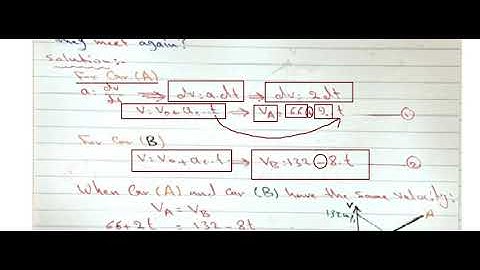 they meet again?
Solution:-
For Car (A)
a = dv/dt ⇒ dv = a.dt ⇒ dv = 2.dt
V = V₀ + a_c.t → V_A = 66 + 2.t → 1
For Car (B)
V = V₀ + a_c.t → V_B = 132 - 8.t → 2
When Car (A) and Car (B) have the same velocity:
V_A = V_B
66+2t = 132-8t
V
A